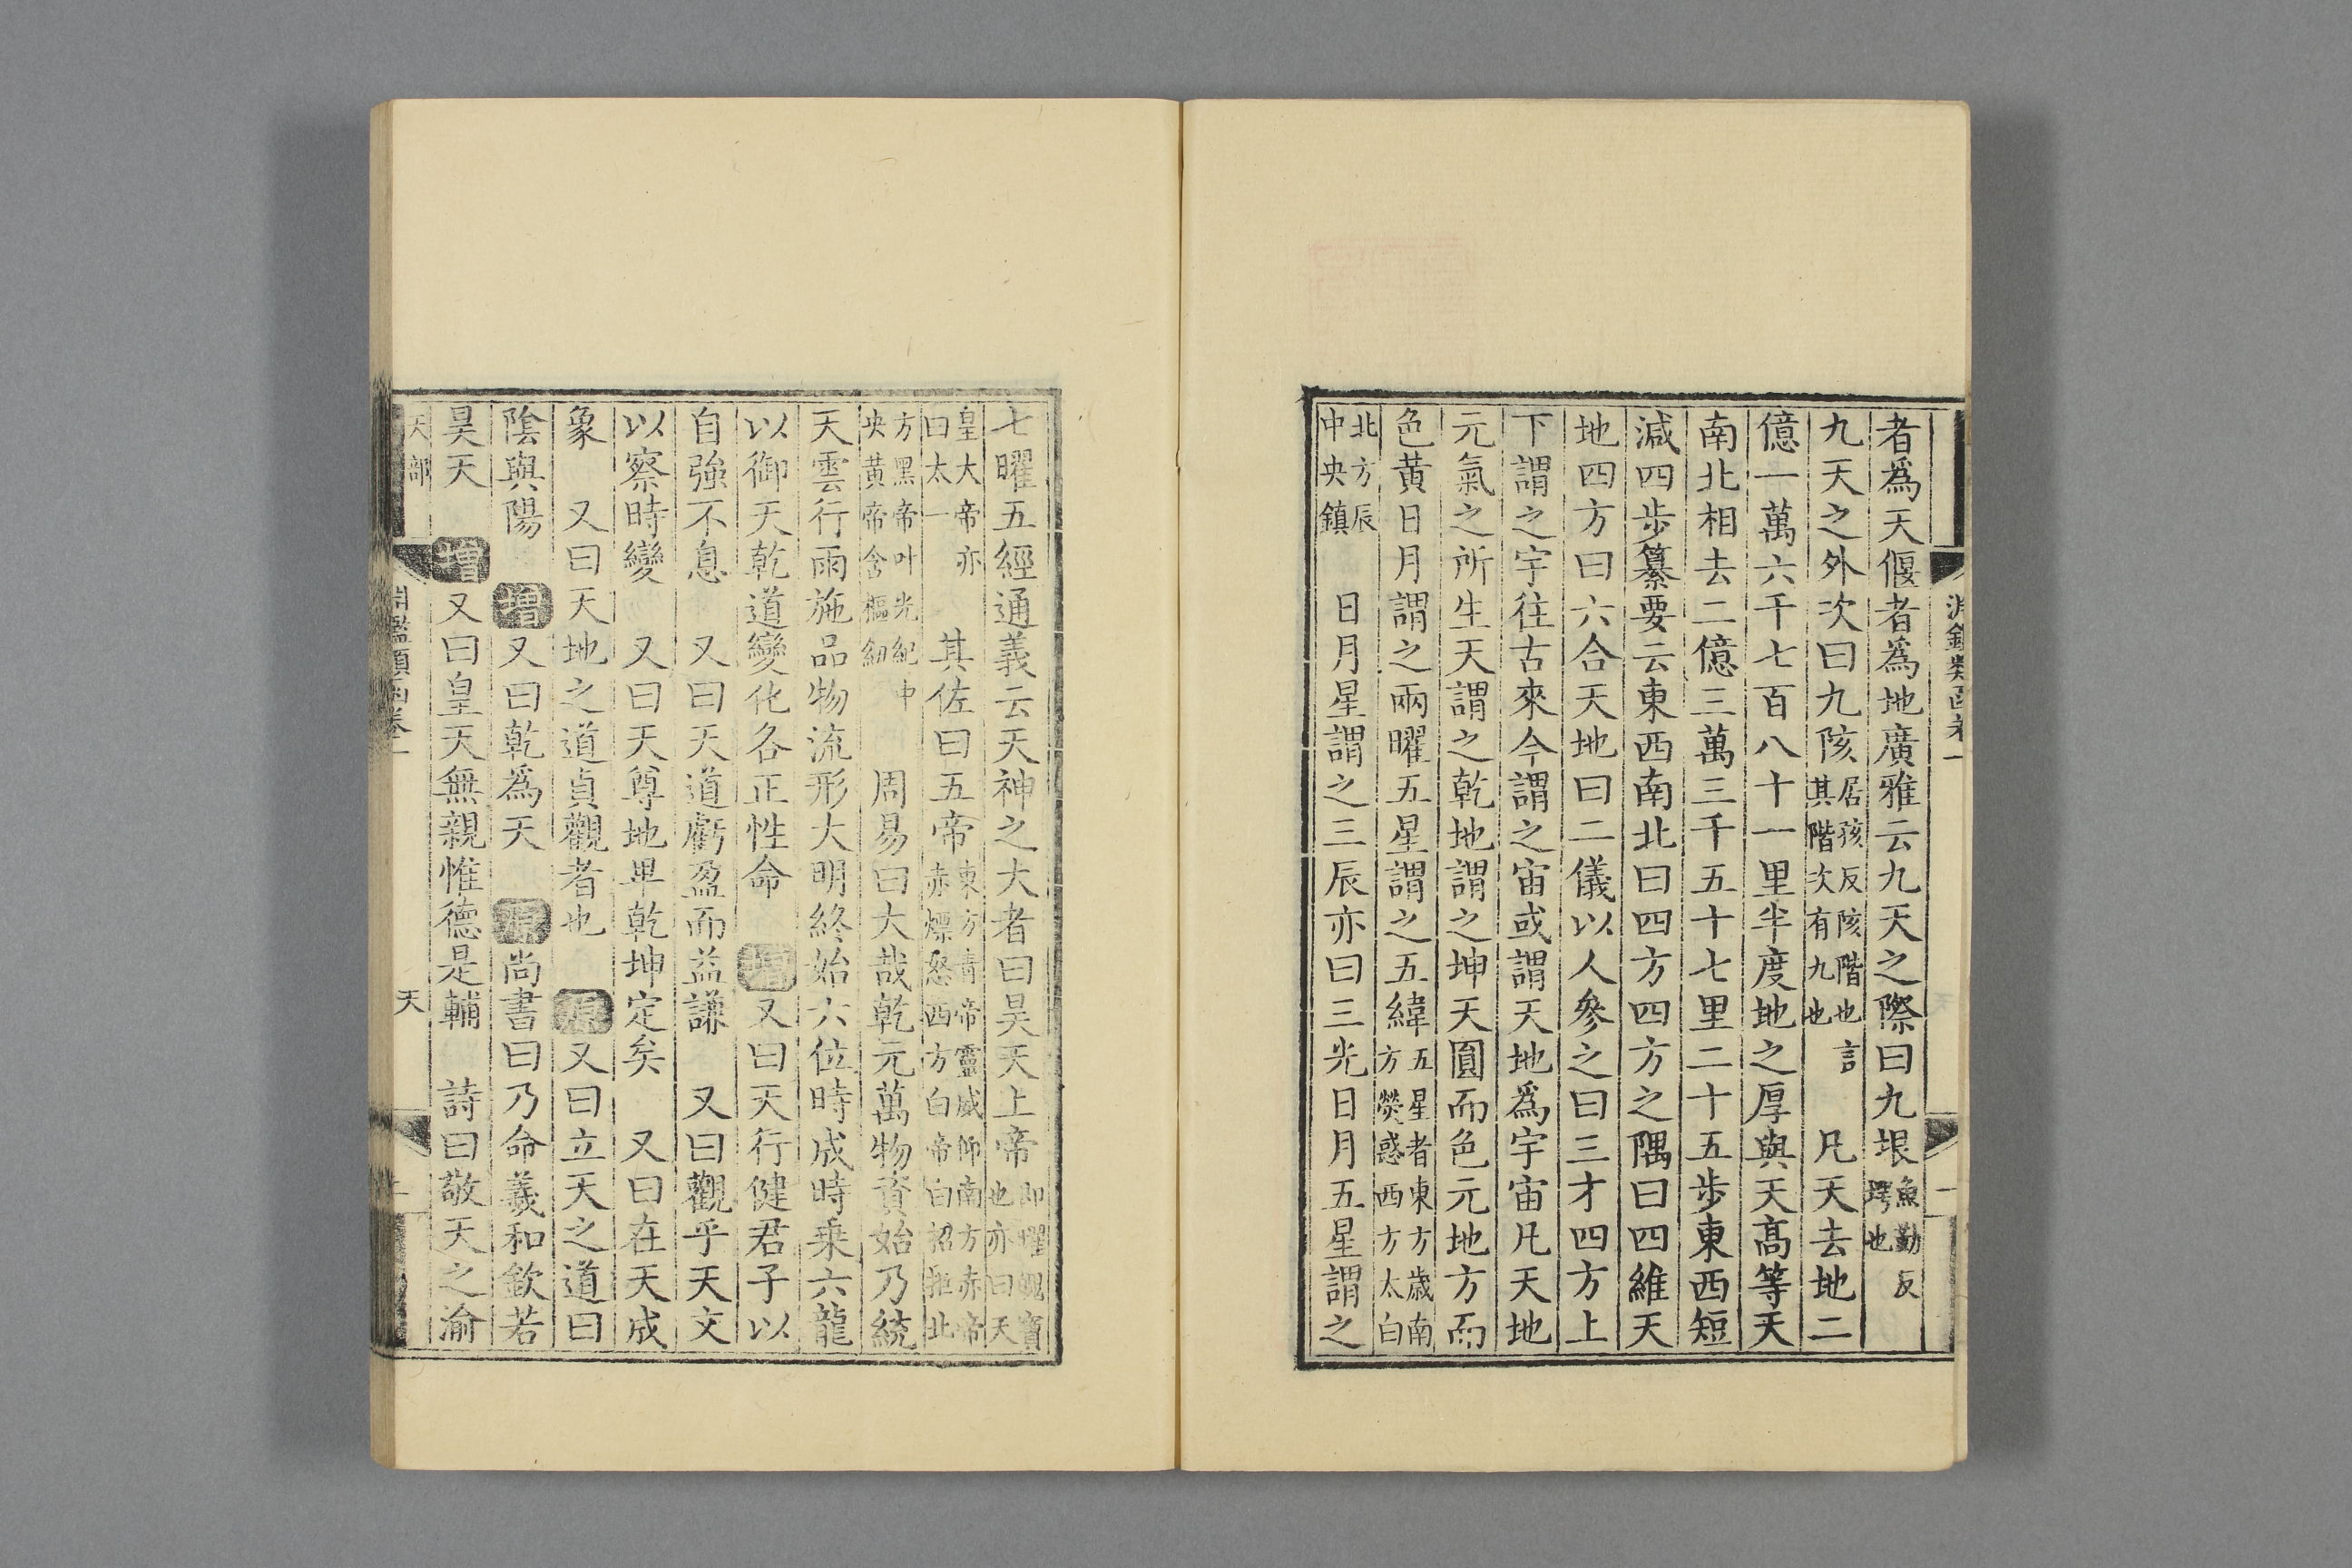 者爲天偃者爲地廣雅云九天之際曰九垠魚勤反堮也
九天之外次曰九陔居孩反陔階也言其階次有九也 凡天去地二
億一萬六千七百八十一里半度地之厚與天高等天
南北相去二億三萬三千五十七里二十五步東西短
減四步纂要云東西南北曰四方四方之隅曰四維天
地四方曰六合天地曰二儀以人參之曰三才四方上
下謂之宇往古來今謂之宙或謂天地爲宇宙凡天地
元氣之所生天謂之乾地謂之坤天圓而色元地方而
色黃日月謂之兩曜五星謂之五緯五星者東方歲南方熒惑西方太白
北方辰中央鎮 日月星謂之三辰亦曰三光日月五星謂之
七曜五經通義云天神之大者曰昊天上帝即曜魄寶也亦曰天
皇大帝亦曰太一 其佐曰五帝東方青帝靈威仰南方赤帝赤熛怒西方白帝白招拒北
方黑帝叶光紀中央黃帝含樞紐 周易曰大哉乾元萬物資始乃統
天雲行雨施品物流形大明終始六位時成時乘六龍
以御天乾道變化各正性命 增又曰天行健君子以
自強不息 又曰天道虧盈而益謙 又曰觀乎天文
以察時變 又曰天尊地卑乾坤定矣 又曰在天成
象 又曰天地之道貞觀者也 原又曰立天之道曰
陰與陽 增又曰乾爲天 原尚書曰乃命羲和欽若
昊天 增又曰皇天無親惟德是輔 詩曰敬天之渝
天部
淵鑑類函卷一
天